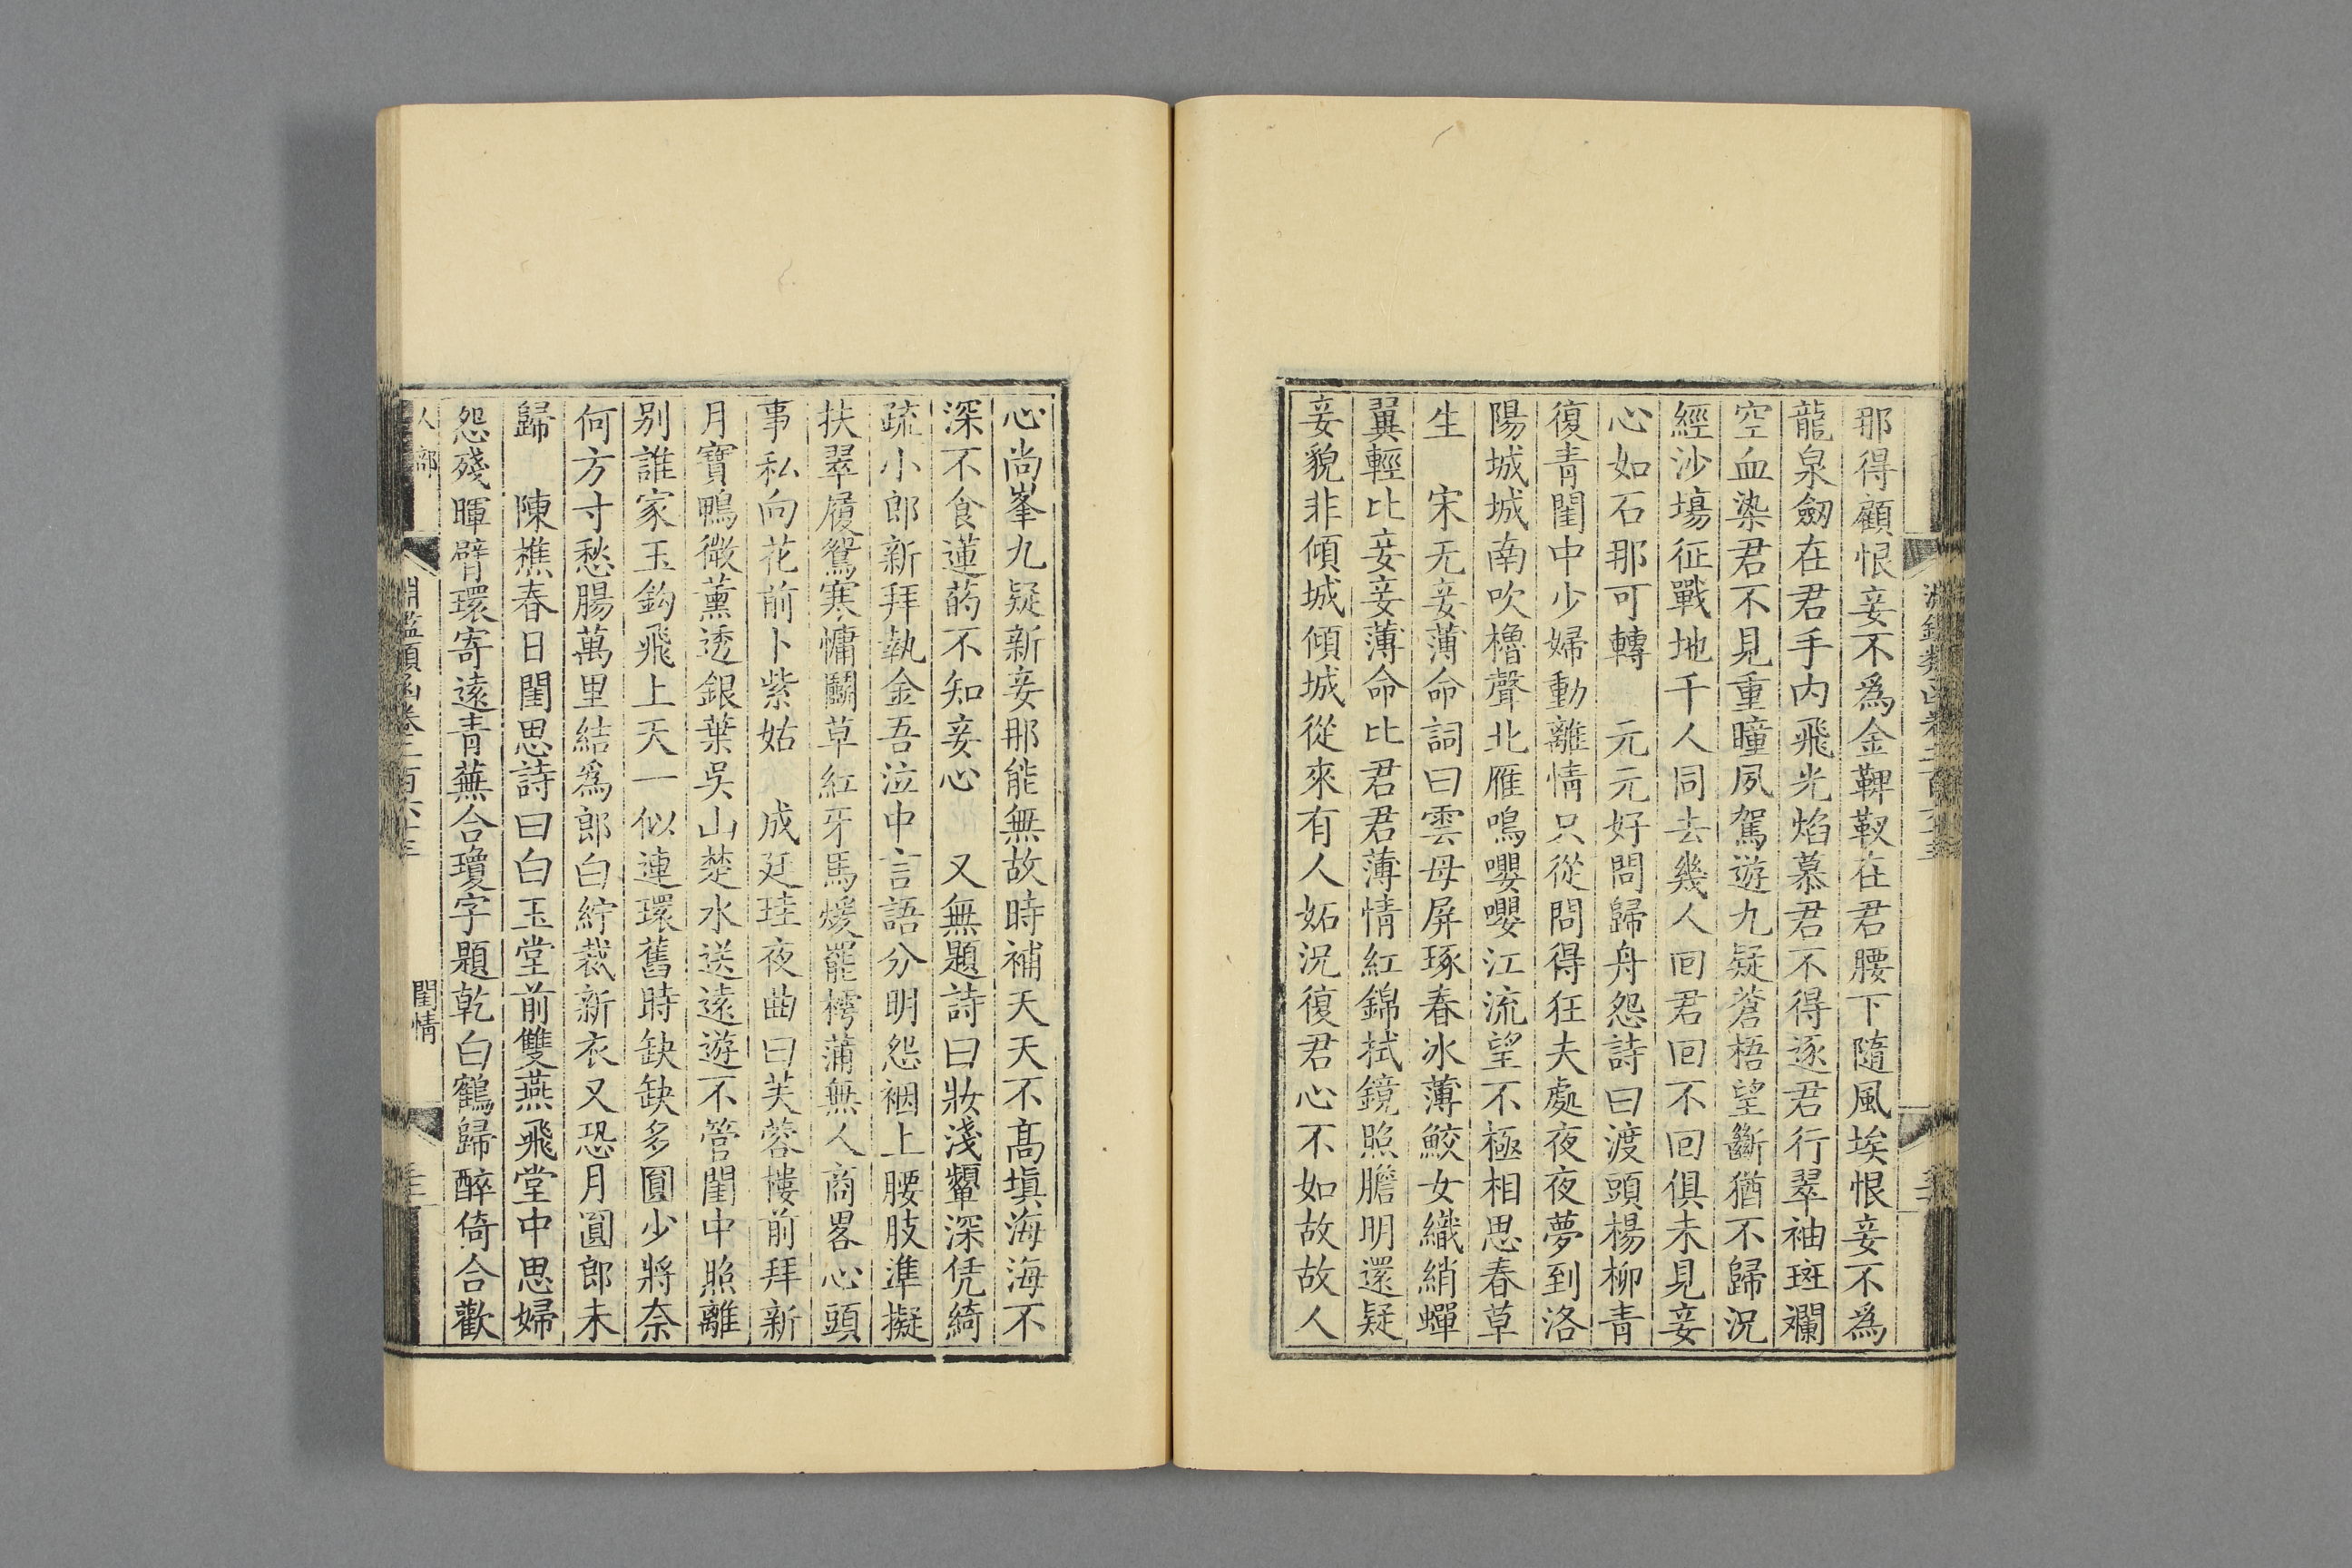 那得顧恨妾不爲金鞞靫在君腰下隨風埃恨妾不爲
龍泉劒在君手内飛光焰慕君不得逐君行翠袖斑斕
空血染君不見重瞳夙駕遊九疑蒼梧望斷猶不歸況
經沙塲征戰地千人同去幾人回君回不回俱未見妾
心如石那可轉　元元好問歸舟怨詩曰渡頭楊柳青
復青閨中少婦動離情只從問得狂夫處夜夜夢到洛
陽城城南吹櫓聲北雁鳴嚶嚶江流望不極相思春草
生　宋无妾薄命詞曰雲母屏琢春冰薄鮫女織綃蟬
翼輕比妾妾薄命比君君薄情紅錦拭鏡照膽明還疑
妾貌非傾城傾城從來有人妬況復君心不如故故人
心尚峯九疑新妾那能無故時補天天不高塡海海不
深不食蓮菂不知妾心　又無題詩曰妝淺顰深凭綺
疏小郎新拜執金吾泣中言語分明怨裀上腰肢準擬
扶翠履鴛寒慵鬭草紅牙馬煖罷樗蒲無人商畧心頭
事私向花前卜紫姑　成廷珪夜曲曰芙蓉樓前拜新
月寶鴨微薰透銀葉吳山楚水送遠遊不管閨中照離
别誰家玉鈎飛上天一似連環舊時缺缺多圓少將奈
何方寸愁腸萬里結爲郎白紵裁新衣又恐月圓郎未
歸　陳樵春日閨思詩曰白玉堂前雙燕飛堂中思婦
怨殘暉臂環寄遠青蕪合瓊字題乾白鶴歸醉倚合歡
人部
淵鑑類函卷二百六十三
閨情